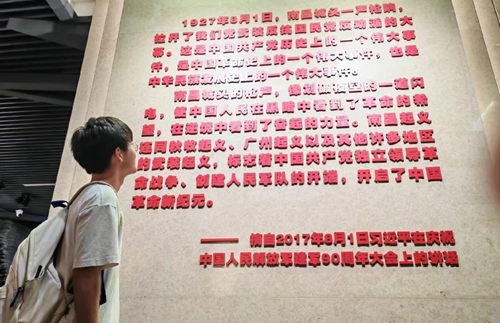 1927年8月1日，南昌城头一声枪响，
拉开了我们党武装反抗国民党反动派的大
幕。这是中国共产党历史上的一个伟大事
件，是中国革命史上的一个伟大事件，也是
中华民族发展史上的一个伟大事件。
南昌城头的枪声，像划破夜空的一道闪
电，使中国人民在黑暗中看到了革命的希
望，在逆境中看到了奋起的力量。南昌起义
连同秋收起义、广州起义以及其他许多地区
的武装起义，标志着中国共产党独立领导革
命战争、创建人民军队的开端，开启了中国
革命新纪元。
——摘自2017年8月1日习近平在庆祝
中国人民解放军建军90周年大会上的讲话